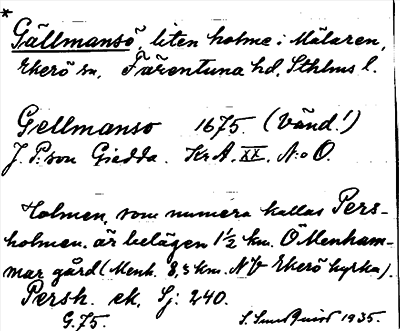 *
Gällmansö, liten holme i Mälaren,
Ekerö sn, Färentuna hd, Sthlms l.
Gellmanso 1675. (Vänd!)
J. P:son Giedda. Kr.A. XX. N:o O.
Holmen, som numera kallas Pers-
holmen, är belägen 1½ km. Ö Menham-
mar gård (Menh. 8,3 km. NV Ekerö kyrka).
Persh. ek. Sj: 240.
G.75. S. 1935.